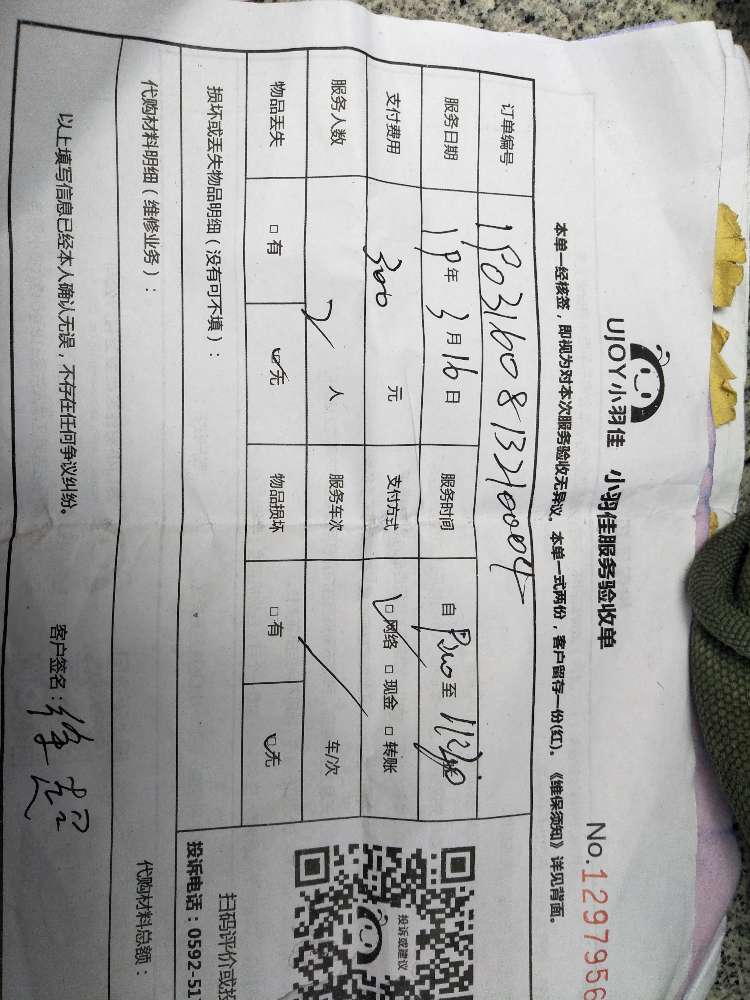 UJOY小羽佳 小羽佳服务验收单
No.1297956
本单一经核签，即视为对本次服务验收无异议。本单一式两份，客户留存一份(红)。《维保须知》详见背面。
订单编号
服务日期 19年3月16日 服务时间 自 至
支付费用 300 元 支付方式 □网络 □现金 □转账
服务人数 2 人 服务车次 / 车/次
物品丢失 □有 □无 物品损坏 □有 □无
损坏或丢失物品明细（没有可不填）：
投诉或建议
扫码评价或投
投诉电话：0592-51
代购材料明细（维修业务）： 代购材料总额：
以上填写信息已经本人确认无误，不存在任何争议纠纷。 客户签名：徐超